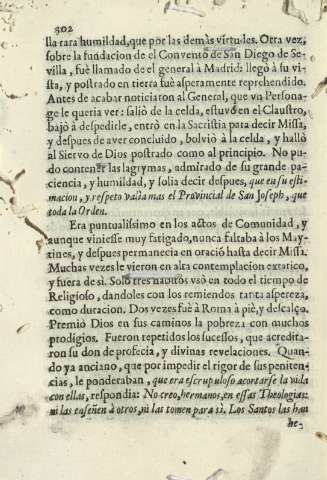 302
lla rara humildad, que por las demàs virtudes. Otra vez,
sobre la fundacion de el Convento de San Diego de Se-
villa, fuè llamado de el general à Madrid: llegò à su vi-
sta, y postrado en tierra fuè asperamente reprehendido.
Antes de acabar noticiaron al General, que vn Persona-
ge le queria ver: saliò de la celda, estuvo en el Claustro,
bajò à despedirle, entrò en la Sacristia para decir Missa,
y despues de aver concluido, bolviò à la celda, y hallò
al Siervo de Dios postrado como al principio. No pu-
do contener las lagrymas, admirado de su grande pa-
ciencia, y humildad, y solia decir despues, que en su esti-
macion, y respeto valia mas el Provincial de San Joseph, que
toda la Orden.
Era puntualissimo en los actos de Comunidad, y
aunque viniesse muy fatigado, nunca faltaba à los May-
tines, y despues permanecia en oraciõ hasta decir Missa.
Muchas vezes le vieron en alta contemplacion extatico,
y fuera de sì. Solo tres habitos vsò en todo el tiempo de
Religioso, dandoles con los remiendos tanta aspereza,
como duracion. Dos vezes fuè à Roma à piè, y descalço.
Premiò Dios en sus caminos la pobreza con muchos
prodigios. Fueron repetidos los sucessos, que acredita-
ron su don de profecia, y divinas revelaciones. Quan-
do ya anciano, que por impedir el rigor de sus peniten-
cias, le ponderaban, que era escrupuloso acortarse la vida
con ellas, respondia: No creo, hermanos, en essas Theologias:
ni las enseñen à otros, ni las tomen para sì. Los Santos las han
he-